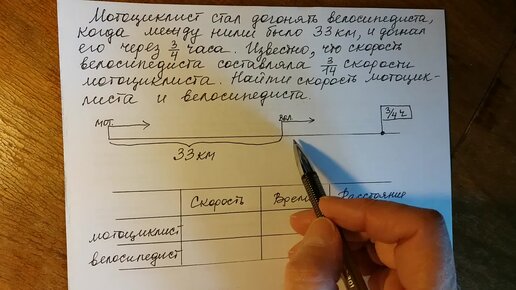 Мотоциклист стал догонять велосипедиста,
когда между ними было 33 км, и догнал
его через 3/4 часа. Известно, что скорость
велосипедиста составляла 3/14 скорости
мотоциклиста. Найти скорость мотоцик-
листа и велосипедиста.
мот. вел. 3/4 ч
33 км
Скорость Время Расстояние
мотоциклист
велосипедист